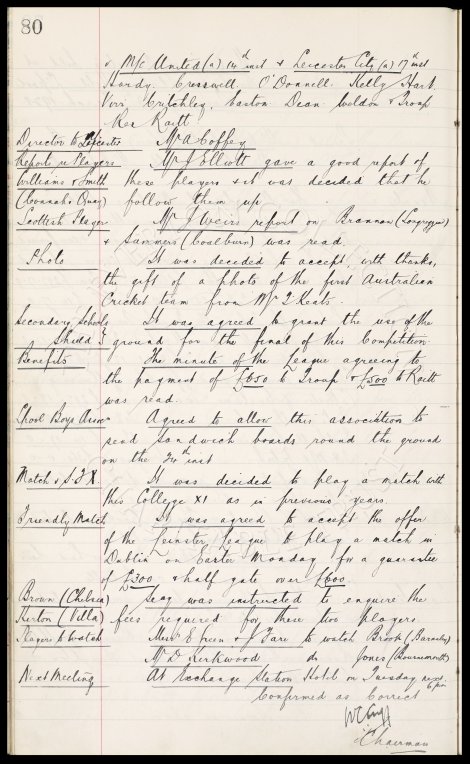 80
v M/c United (a) 14th inst & Leicester City (a) 17th inst
Hardy. Cresswell. O'Donnell. Kelly Hart.
Virr, Critchley, Easton Dean Weldon & Troup
Res Raitt
Director to Leicester Mr A. Coffey
Reports re Players Mr J Elliott gave a good report of
Williams & Smith these players & it was decided that he
(Connahs Quay) follow them up
Scottish Players Mr J Weirs report on Brannan (Longriggend)
& Summers (Coalburn) was read.
Photo It was decided to accept, with thanks,
the gift of a photo of the first Australian
Cricket team from Mr J Keats.
Secondary Schools It was agreed to grant the use of the
Shield ground for the final of this Competition
Benefits The minute of the League agreeing to
the payment of £650 to Troup & £500 to Raitt
was read.
School Boys Assocn Agreed to allow this association to
send Sandwich boards round the ground
on the 24th inst
Match v S.F.X. It was decided to play a match with
this College XI as in previous years.
Friendly Match It was agreed to accept the offer
of the Leinster League to play a match in
Dublin on Easter Monday for a guarantee
of £300 & half gate over £600.
Brown (Chelsea) Secy was instructed to enquire the
Kirton (Villa) fees required for these two players
Players to Watch Messrs E Green & J Fare to watch Brook (Barnsley)
Mr D Kirkwood do Jones (Bournemouth)
Next Meeting At Exchange Station Hotel on Tuesday next 6 pm
Confirmed as Correct
Chairman